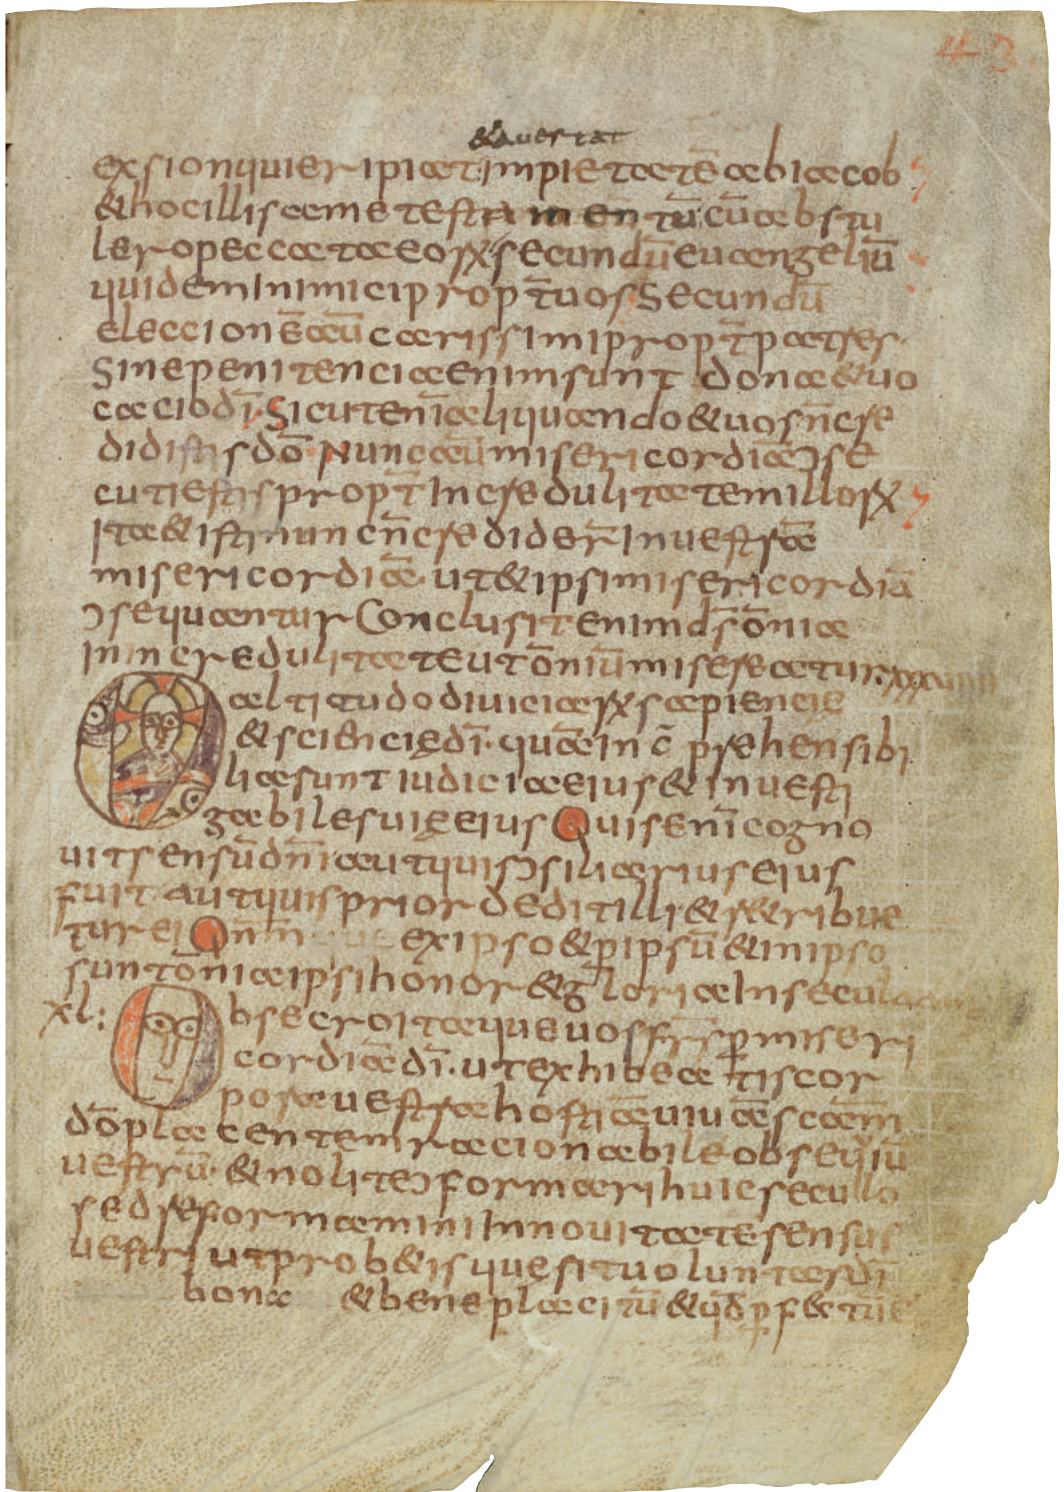 43.
&auertat
exsionquieripiat impietatē abiacob
&hocillisame testamentū cū abstu
leropeccataeorꝝ secundū euangeliū
quidem Inimicipropt̄uos Secundū
eleccionēaū carissimipropt̄patres.
Sinepenitenciaenimsunt dona&uo
caciodī. Sicutenīaliquando&uosn̄cre
didistisdō Nuncaūmisericordiāↄse
cutiestispropt̄ Incredulitatemillorꝝ
Ita&istinuncn̄credider̄ Inuestrā
misericordiā ut&ipsimisericordiā
ↄsequantur Conclusitenimds̄ōnia
Inincredulitateutōniūmisereatur
O altitudodiuiciarꝝ sapiencie
&scienciędī. quāin c̄ prehensibi
liasuntiudiciaeius&inuesti
gabilesuięeius Quisenīcogno
uitsensūdn̄iautquisↄsiliariuseius
fuit autquispriordeditilli&r&ribue
turei Qn̄m exipso&ꝑipsū&inipso
suntōniaipsihonor&gloriaInsecula
xl: Obsecroitaqueuosfr̄sꝑmiseri
cordiādī. utexhibeatiscor
porauestrahostiāuiuāscām̄
dōplacentemracionabileobsequiū
uestrū &noliteↄformarihuicsecullo
sedreformaminiInnouitatesensus
uestriutprob&isquęsituoluntasdī
bona &beneplacitū&qd̄ꝑf&tūe